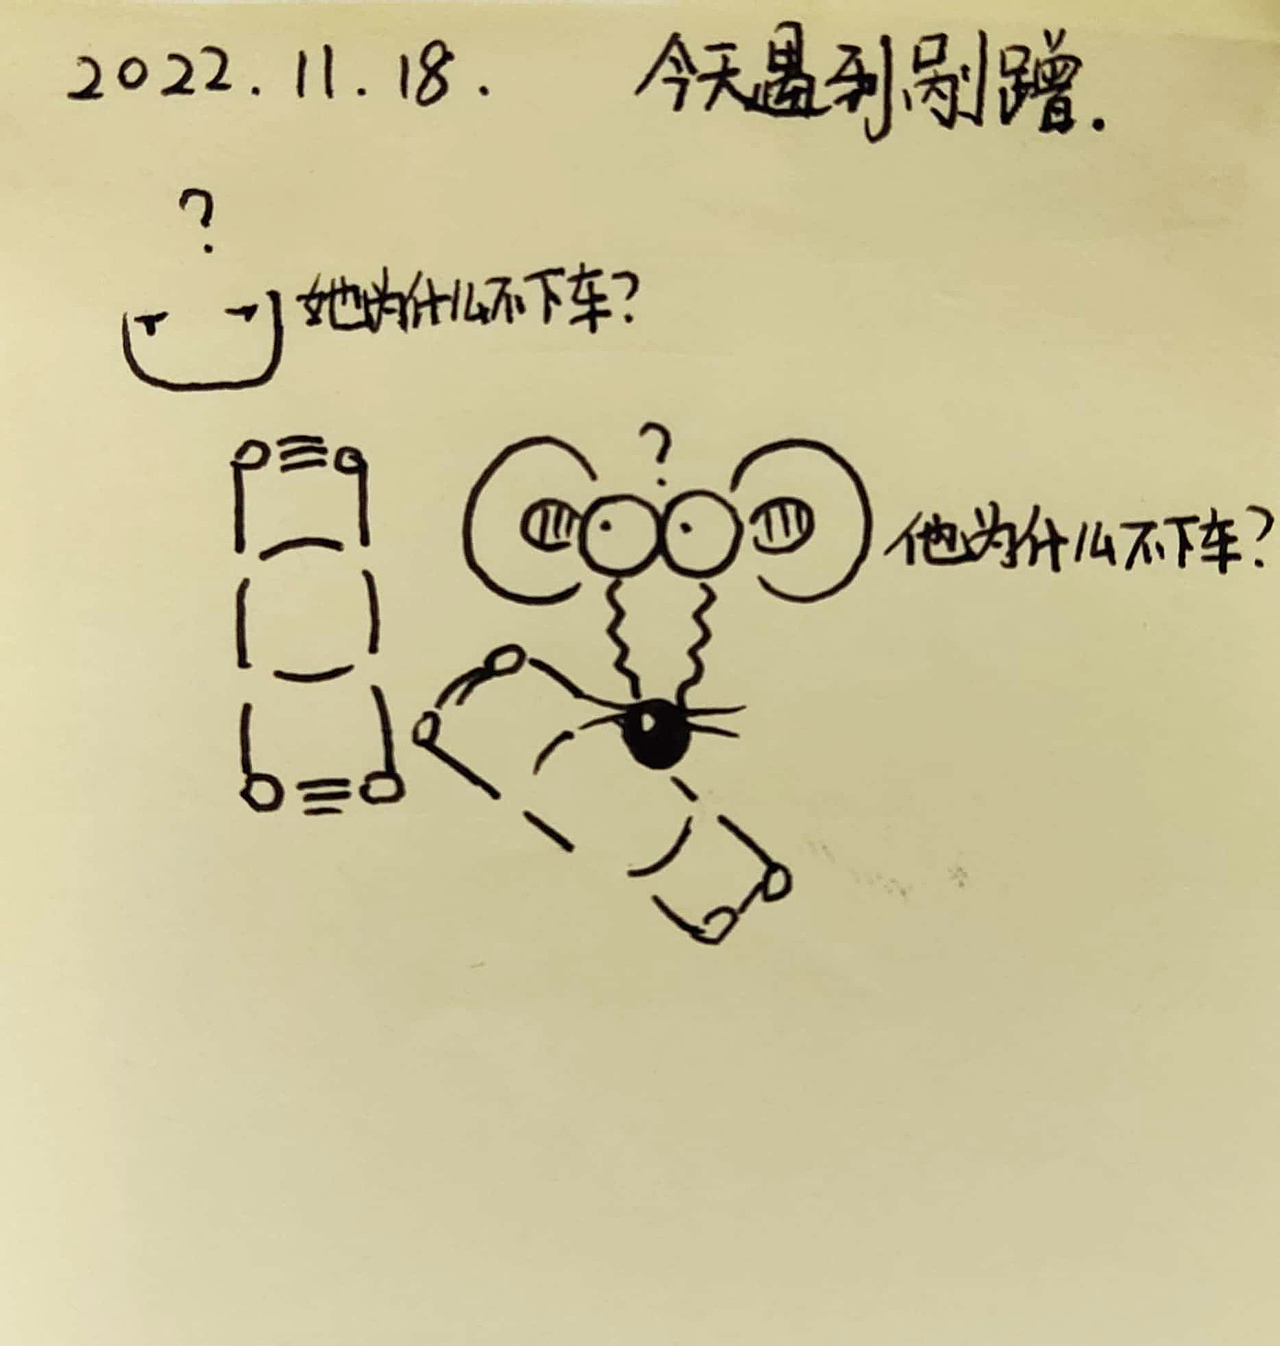 2022.11.18. 今天遇到剐蹭.
?
她为什么不下车?
?
他为什么不下车?